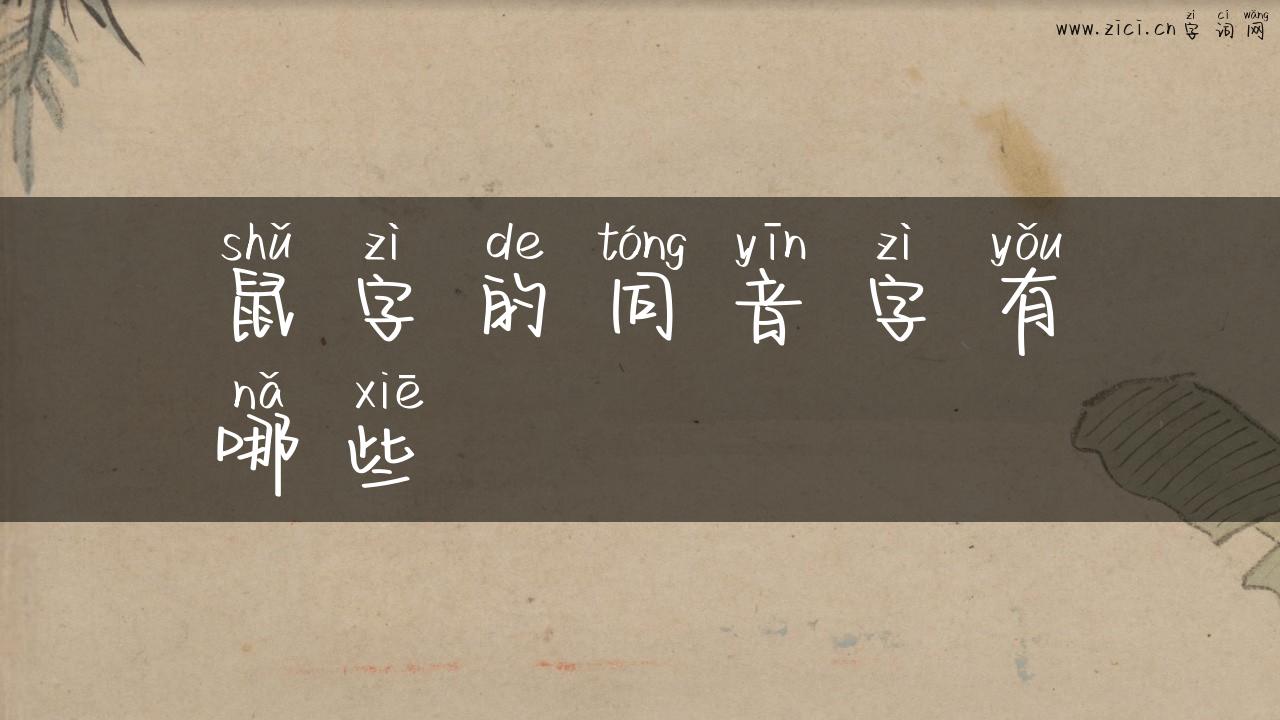 zì cí wǎng
www.zici.cn 字 词 网
shǔ zì de tóng yīn zì yǒu
鼠 字 的 同 音 字 有
nǎ xiē
哪 些